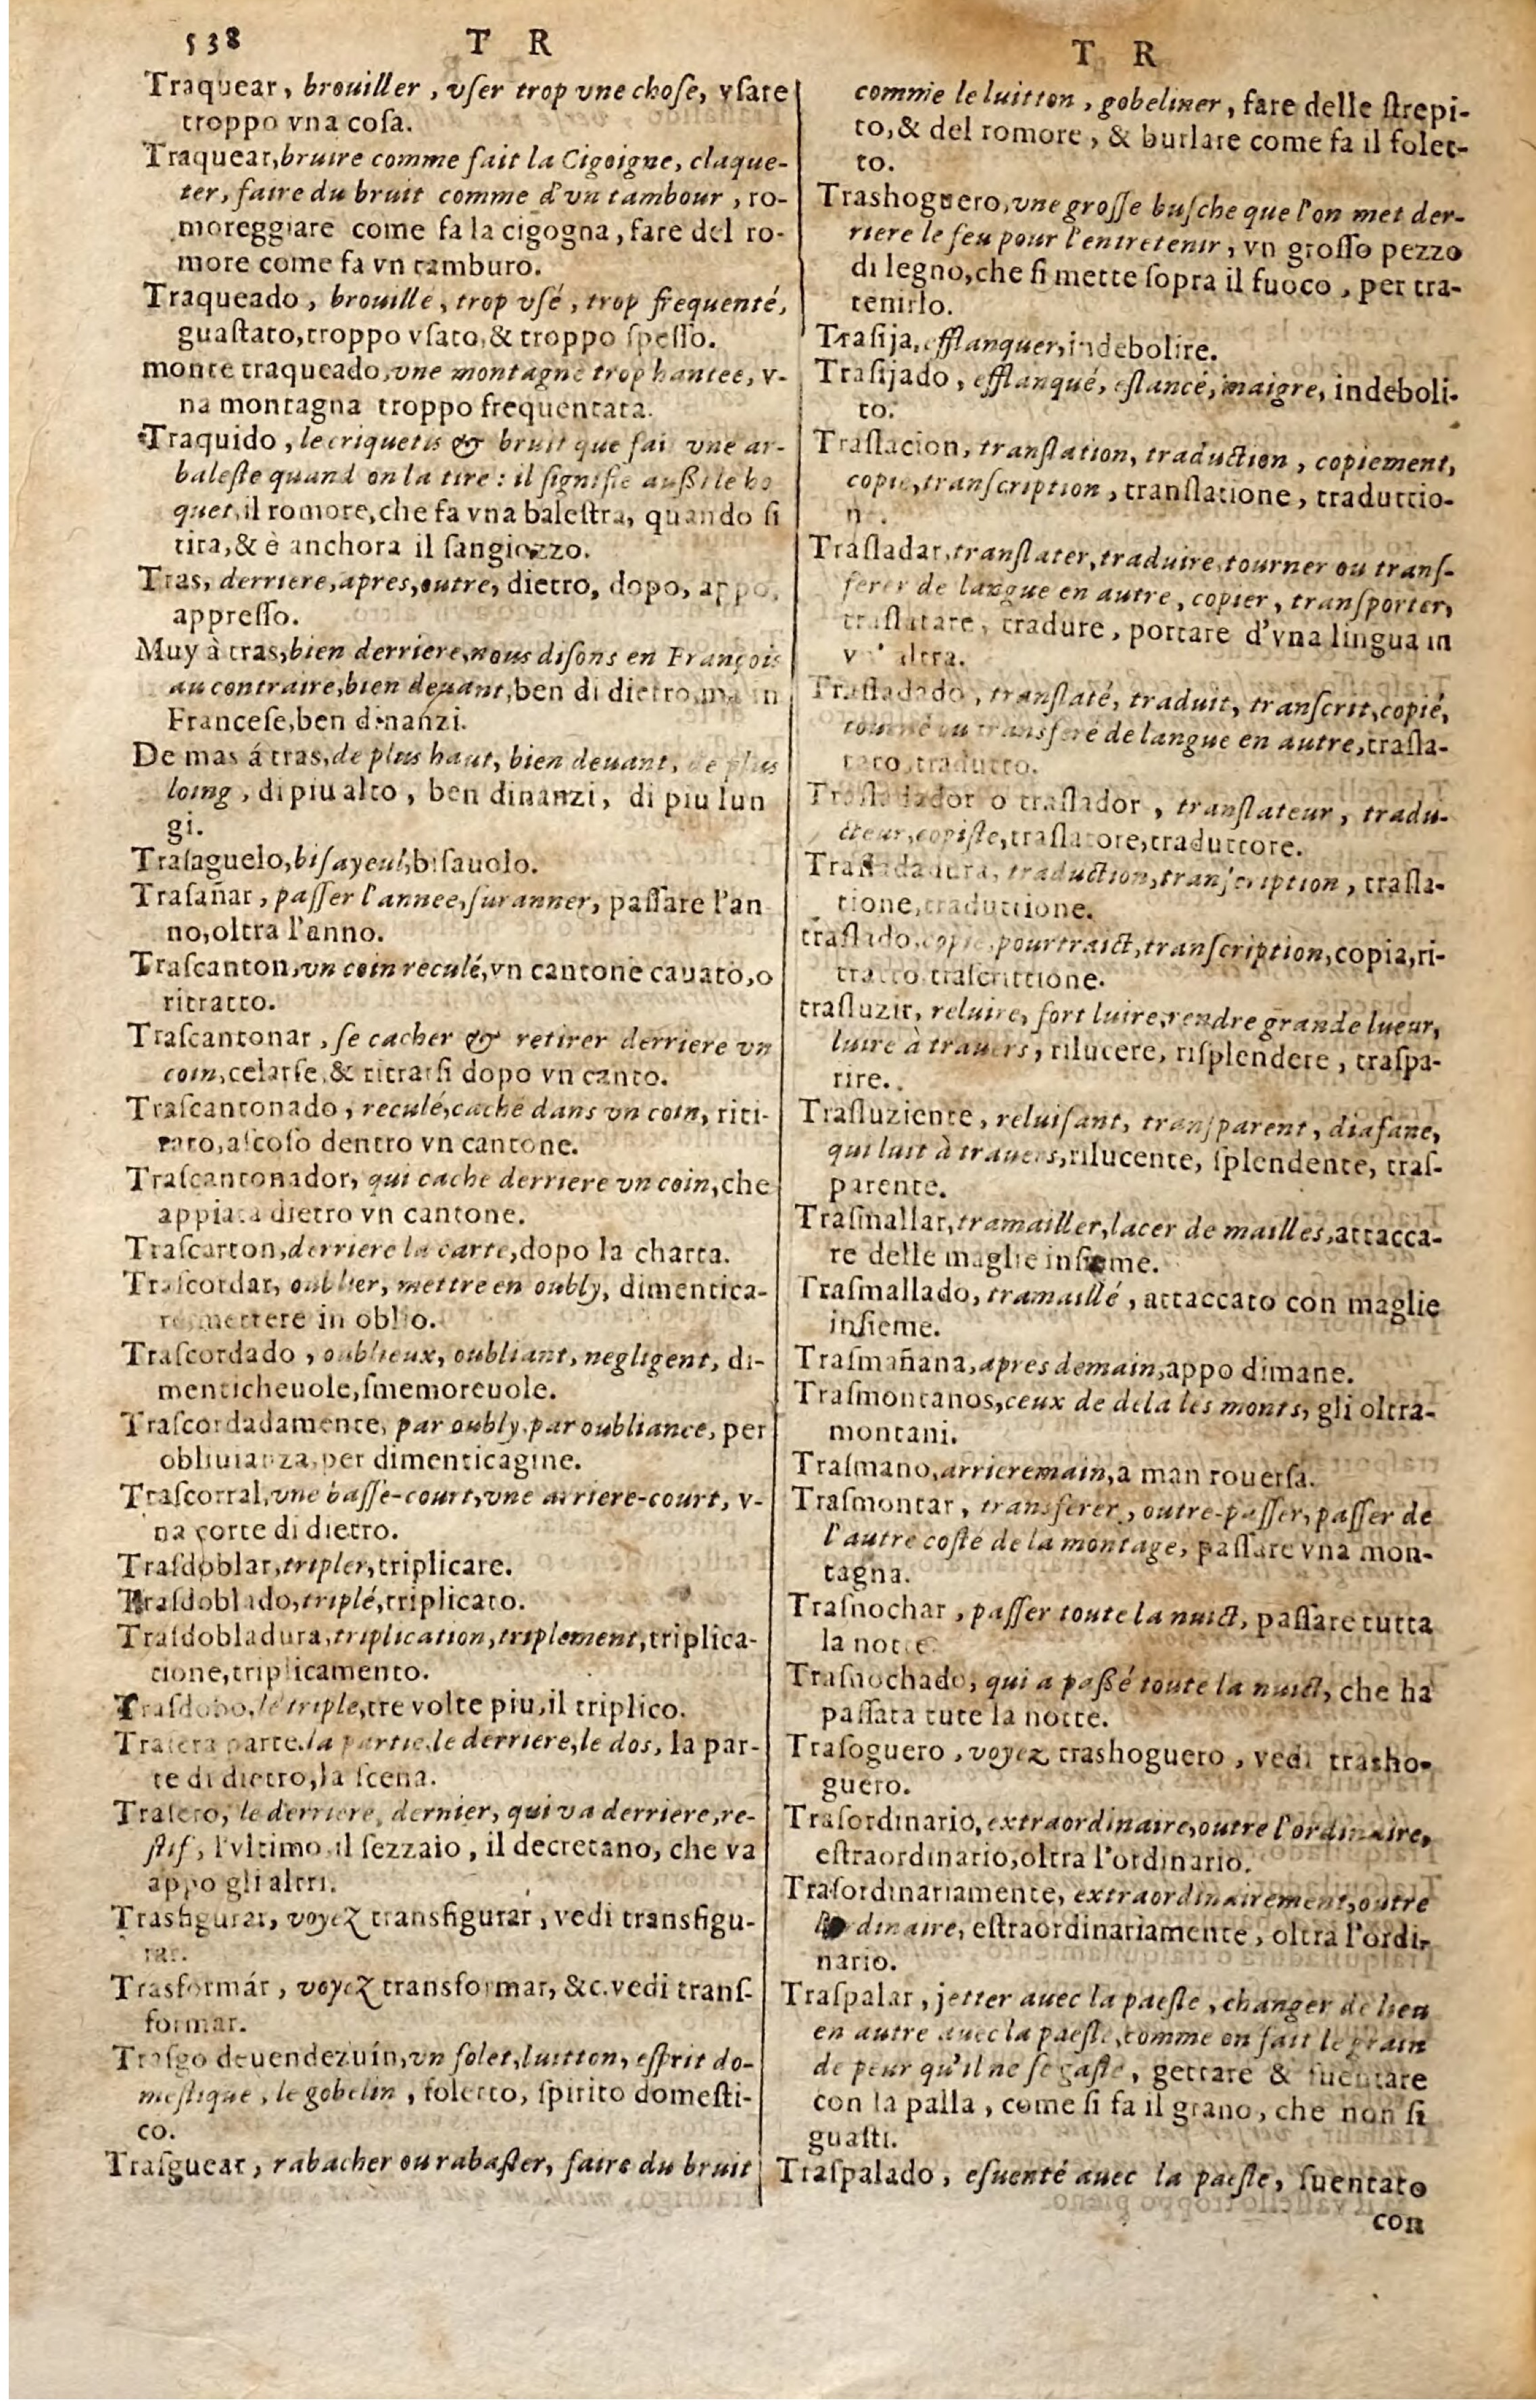 538 T R
Traquear, brouiller, vſer trop vne choſe, vſare
troppo vna coſa.
Traquear, bruire comme fait la Cigoigne, claque-
ter, faire du bruit comme d'vn tambour, ro-
moreggiare come fa la cigogna, fare del ro-
more come fa vn tamburo.
Traqueado, brouille, trop vſé, trop frequenté,
guaſtato, troppo vſato, & troppo ſpeſſo.
monte traqueado, vne montagne trop hantee, v-
na montagna troppo frequentata.
Traquido, le criquetis & bruit que fai vne ar-
baleſte quand on la tire: il ſignifie außi le ho
quet, il romore, che fa vna baleſtra, quando ſi
tira, & è anchora il ſangiozzo.
Tras, derriere, apres, outre, dietro, dopo, appo,
appreſſo.
Muy à tras, bien derriere, nous diſons en François
au contraire, bien deuant, ben di dietro, ma in
Franceſe, ben dinanzi.
De mas á tras, de plus haut, bien deuant, de plus
loing, di piu alto, ben dinanzi, di piu lun
gi.
Traſaguelo, biſayeul, biſauolo.
Traſañar, paſſer l'annee, ſuranner, paſſare l'an
no, oltra l'anno.
Traſcanton, vn coin reculé, vn cantone cauato, o
ritratto.
Traſcantonar, ſe cacher & retirer derriere vn
coin, celarſe, & ritrarſi dopo vn canto.
Traſcantonado, reculé, caché dans vn coin, riti-
rato, aſcoſo dentro vn cantone.
Traſcantonador, qui cache derriere vn coin, che
appiata dietro vn cantone.
Traſcarton, derriere la carte, dopo la charta.
Traſcordar, oublier, mettre en oubly, dimentica-
re, mettere in oblio.
Traſcordado, oublieux, oubliant, negligent, di-
menticheuole, ſmemoreuole.
Traſcordadamente, par oubly, par oubliance, per
obliuianza, per dimenticagine.
Traſcorral, vne baſſe-court, vne arriere-court, v-
na corte di dietro.
Traſdoblar, tripler, triplicare.
Traſdoblado, triplé, triplicato.
Traſdobladura, triplication, triplement, triplica-
tione, triplicamento.
Traſdobo, le triple, tre volte piu, il triplico.
Traſera parte, la partie, le derriere, le dos, la par-
te di dietro, la ſcena.
Traſero, le derriere, dernier, qui va derriere, re-
ſtif, l'vltimo, il ſezzaio, il decretano, che va
appo gli altri.
Trasfigurar, voyez transfigurar, vedi transfigu-
rar.
Trasformár, voyez transformar, &c. vedi tranſ-
formar.
Traſgo deuendezuín, vn folet, luitton, eſprit do-
meſtique, le gobelin, foletto, ſpirito domeſti-
co.
Traſguear, rabacher ou rabaſter, faire du bruit
T R
comme le luitton, gobeliner, fare delle ſtrepi-
to, & del romore, & burlare come fa il folet-
to.
Trashoguero, vne groſſe buſche que l'on met der-
riere le feu pour l'entretenir, vn groſſo pezzo
di legno, che ſi mette ſopra il fuoco, per tra-
tenirlo.
Traſija, efflanquer, indebolire.
Traſijado, efflanqué, eſlancé, maigre, indeboli-
to.
Traſlacion, tranſlation, traduction, copiement,
copie, tranſcription, tranſlatione, traduttio-
n .
Traſladar, tranſlater, traduire, tourner ou tranſ-
ferer de langue en autre, copier, tranſporter,
traſlatare, tradure, portare d'vna lingua in
vn' altra.
Traſladado, tranſlaté, traduit, tranſcrit, copié,
tourné ou transferé de langue en autre, traſla-
tato, tradutto.
Traſladador o traſlador, tranſlateur, tradu-
cteur, copiſte, traſlatore, traduttore.
Traſladadura, traduction, tranſcription, traſla-
tione, traduttione.
traſlado, copie, pourtraict, tranſcription, copia, ri-
tratto, traſcrittione.
traſluzir, reluire, fort luire, rendre grande lueur,
luire à trauers, rilucere, riſplendere, traſpa-
rire.
Traſluziente, reluiſant, tranſparent, diafane,
qui luit à trauers, rilucente, ſplendente, traſ-
parente.
Traſmallar, tramailler, lacer de mailles, attacca-
re delle maglie inſieme.
Traſmallado, tramaillé, attaccato con maglie
inſieme.
Traſmañana, apres demain, appo dimane.
Traſmontanos, ceux de dela les monts, gli oltra-
montani.
Traſmano, arrieremain, a man rouerſa.
Traſmontar, transferer, outre-paſſer, paſſer de
l'autre coſté de la montage, paſſare vna mon-
tagna.
Traſnochar, paſſer toute la nuict, paſſare tutta
la notte
Traſnochado, qui a paßé toute la nuict, che ha
paſſata tute la notte.
Traſoguero, voyez trashoguero, vedi trasho-
guero.
Traſordinario, extraordinaire, outre l'ordinaire,
eſtraordinario, oltra l'ordinario.
Traſordinariamente, extraordinairement, outre
l'ordinaire, eſtraordinariamente, oltra l'ordi-
nario.
Traſpalar, jetter auec la paeſle, changer de lieu
en autre auec la paeſle, comme on fait le grain
de peur qu'il ne ſe gaſte, gettare & ſuentare
con la palla, come ſi fa il grano, che non ſi
guaſti.
Traſpalado, eſuenté auec la paeſle, ſuentato
con